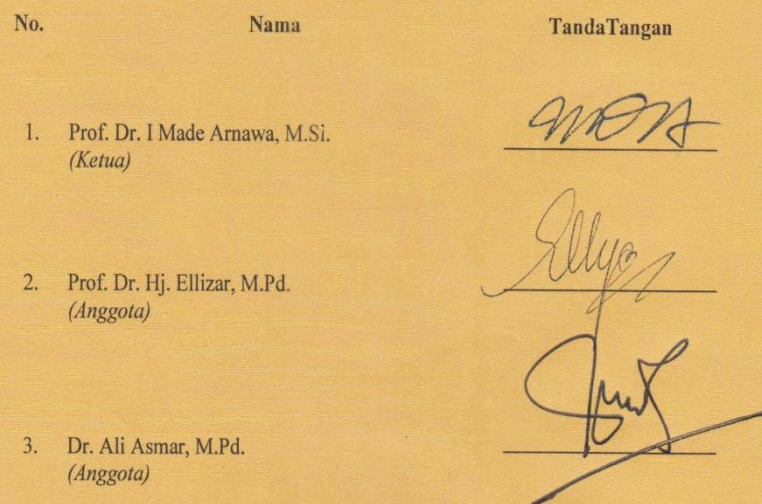 No. Nama TandaTangan
1. Prof. Dr. I Made Arnawa, M.Si.
(Ketua)
2. Prof. Dr. Hj. Ellizar, M.Pd.
(Anggota)
3. Dr. Ali Asmar, M.Pd.
(Anggota)